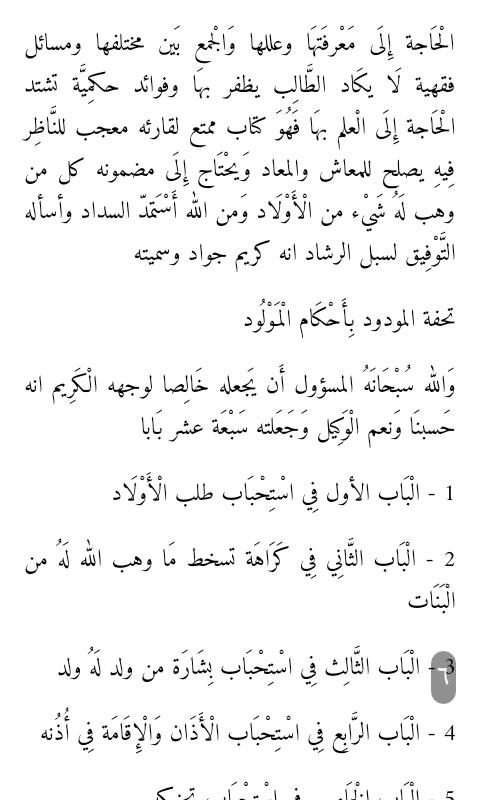 الْحَاجة إِلَى مَعْرفَتهَا وعللها وَالْجمع بَين مختلفها ومسائل
فقهية لَا يكَاد الطَّالِب يظفر بهَا وفوائد حكمِيَّة تشتد
الْحَاجة إِلَى الْعلم بهَا فَهُوَ كتاب ممتع لقارئه معجب للنَّاظِر
فِيهِ يصلح للمعاش والمعاد وَيحْتَاج إِلَى مضمونه كل من
وهب لَهُ شَيْء من الْأَوْلَاد وَمن الله أَسْتَمدّ السداد وأسأله
التَّوْفِيق لسبل الرشاد انه كريم جواد وسميته
تحفة المودود بِأَحْكَام الْمَوْلُود
وَالله سُبْحَانَهُ المسؤول أَن يَجعله خَالِصا لوجهه الْكَرِيم انه
حَسبنَا وَنعم الْوَكِيل وَجَعَلته سَبْعَة عشر بَابا
1 - الْبَاب الأول فِي اسْتِحْبَاب طلب الْأَوْلَاد
2 - الْبَاب الثَّانِي فِي كَرَاهَة تسخط مَا وهب الله لَهُ من
الْبَنَات
3 - الْبَاب الثَّالِث فِي اسْتِحْبَاب بِشَارَة من ولد لَهُ ولد
٦
4 - الْبَاب الرَّابِع فِي اسْتِحْبَاب الْأَذَان وَالْإِقَامَة فِي أُذُنه